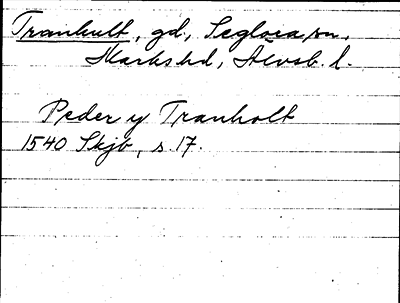 Tranhult, gd, Seglora sn,
Marks hd, Älvsb. l.
Peder y Tranholt
1540 Skjb, s. 17.